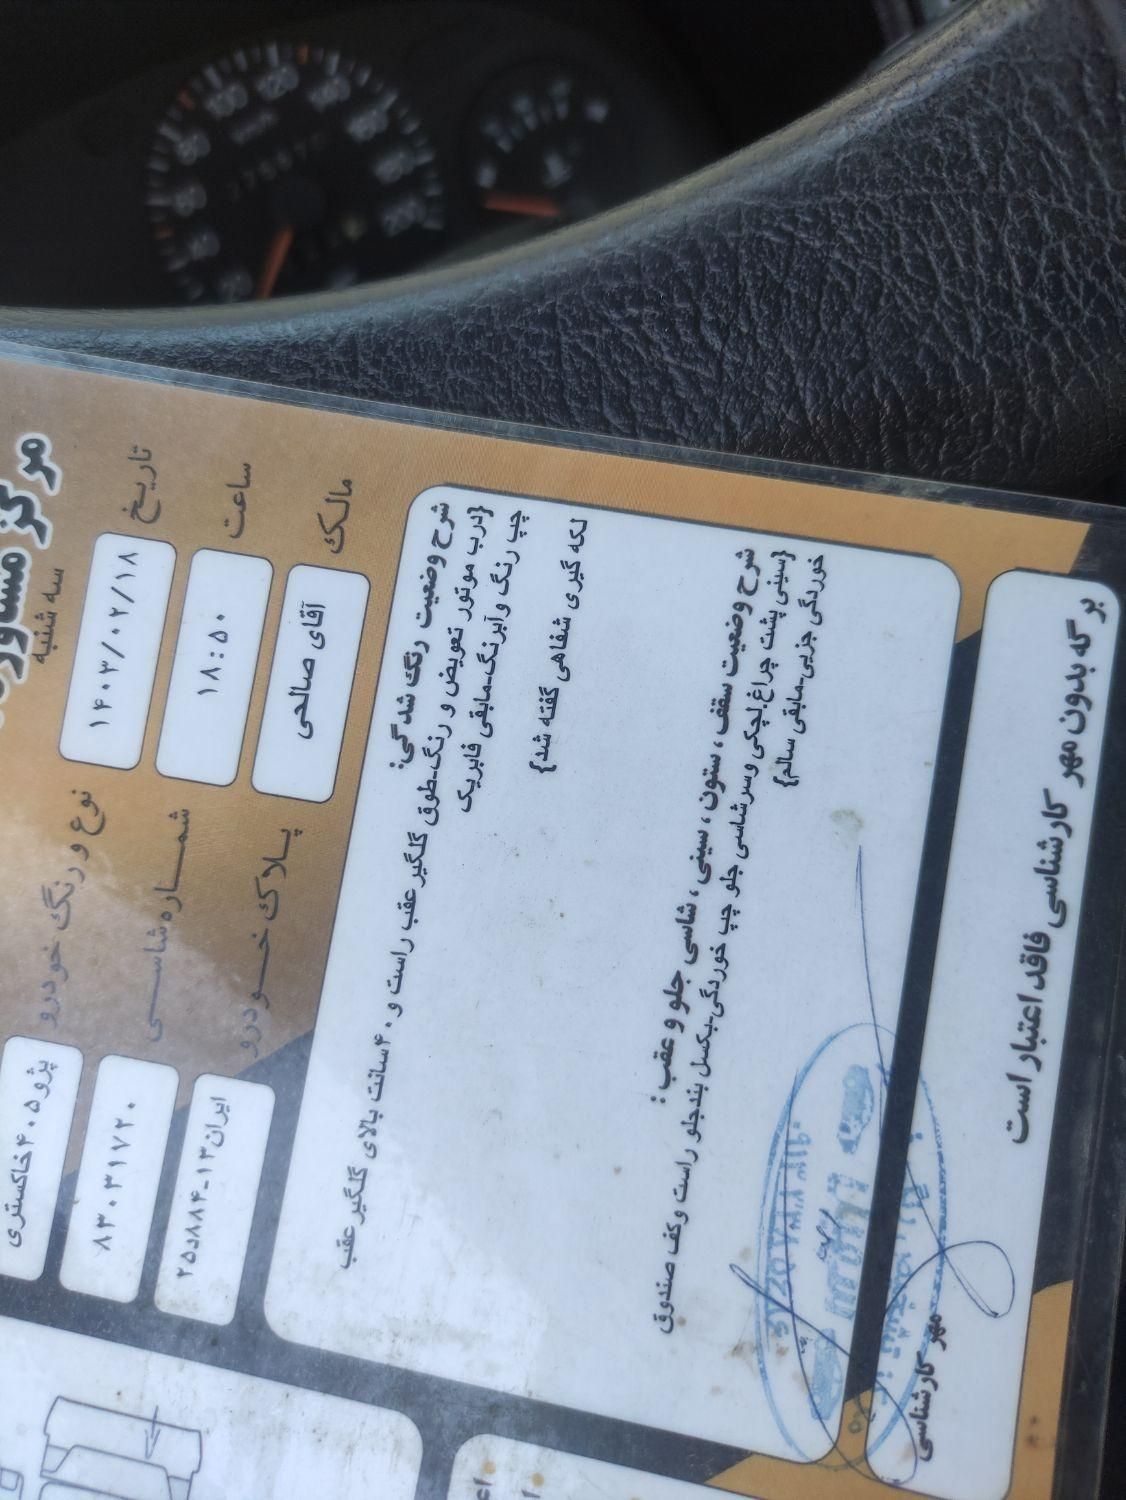 سه شنبه
تاریخ ۱۴۰۳/۰۲/۱۸
ساعت ۱۸:۵۰
مالک آقای صالحی
نوع و رنگ خودرو پژو ۴۰۵ خاکستری
شماره شاسی ۸۳۰۳۱۷۲۰
پلاک خودرو ایران۱۳-۸۸۴د۲۵
شرح وضعیت رنگ شدگی:
{درب موتور تعویض و رنگ-طوق گلگیر عقب راست و ۴۰سانت بالای گلگیر عقب
چپ رنگ وآبرنگ-مابقی فابریک
لکه گیری شفاهی گفته شد}
شرح وضعیت سقف ، ستون ، سینی ، شاسی جلو و عقب :
{سینی پشت چراغ،لچکی وسرشاسی جلو چپ خوردگی-بکسل بندجلو راست وکف صندوق
خوردگی جزیی-مابقی سالم}
مهر کارشناسی
برگه بدون مهر کارشناسی فاقد اعتبار است